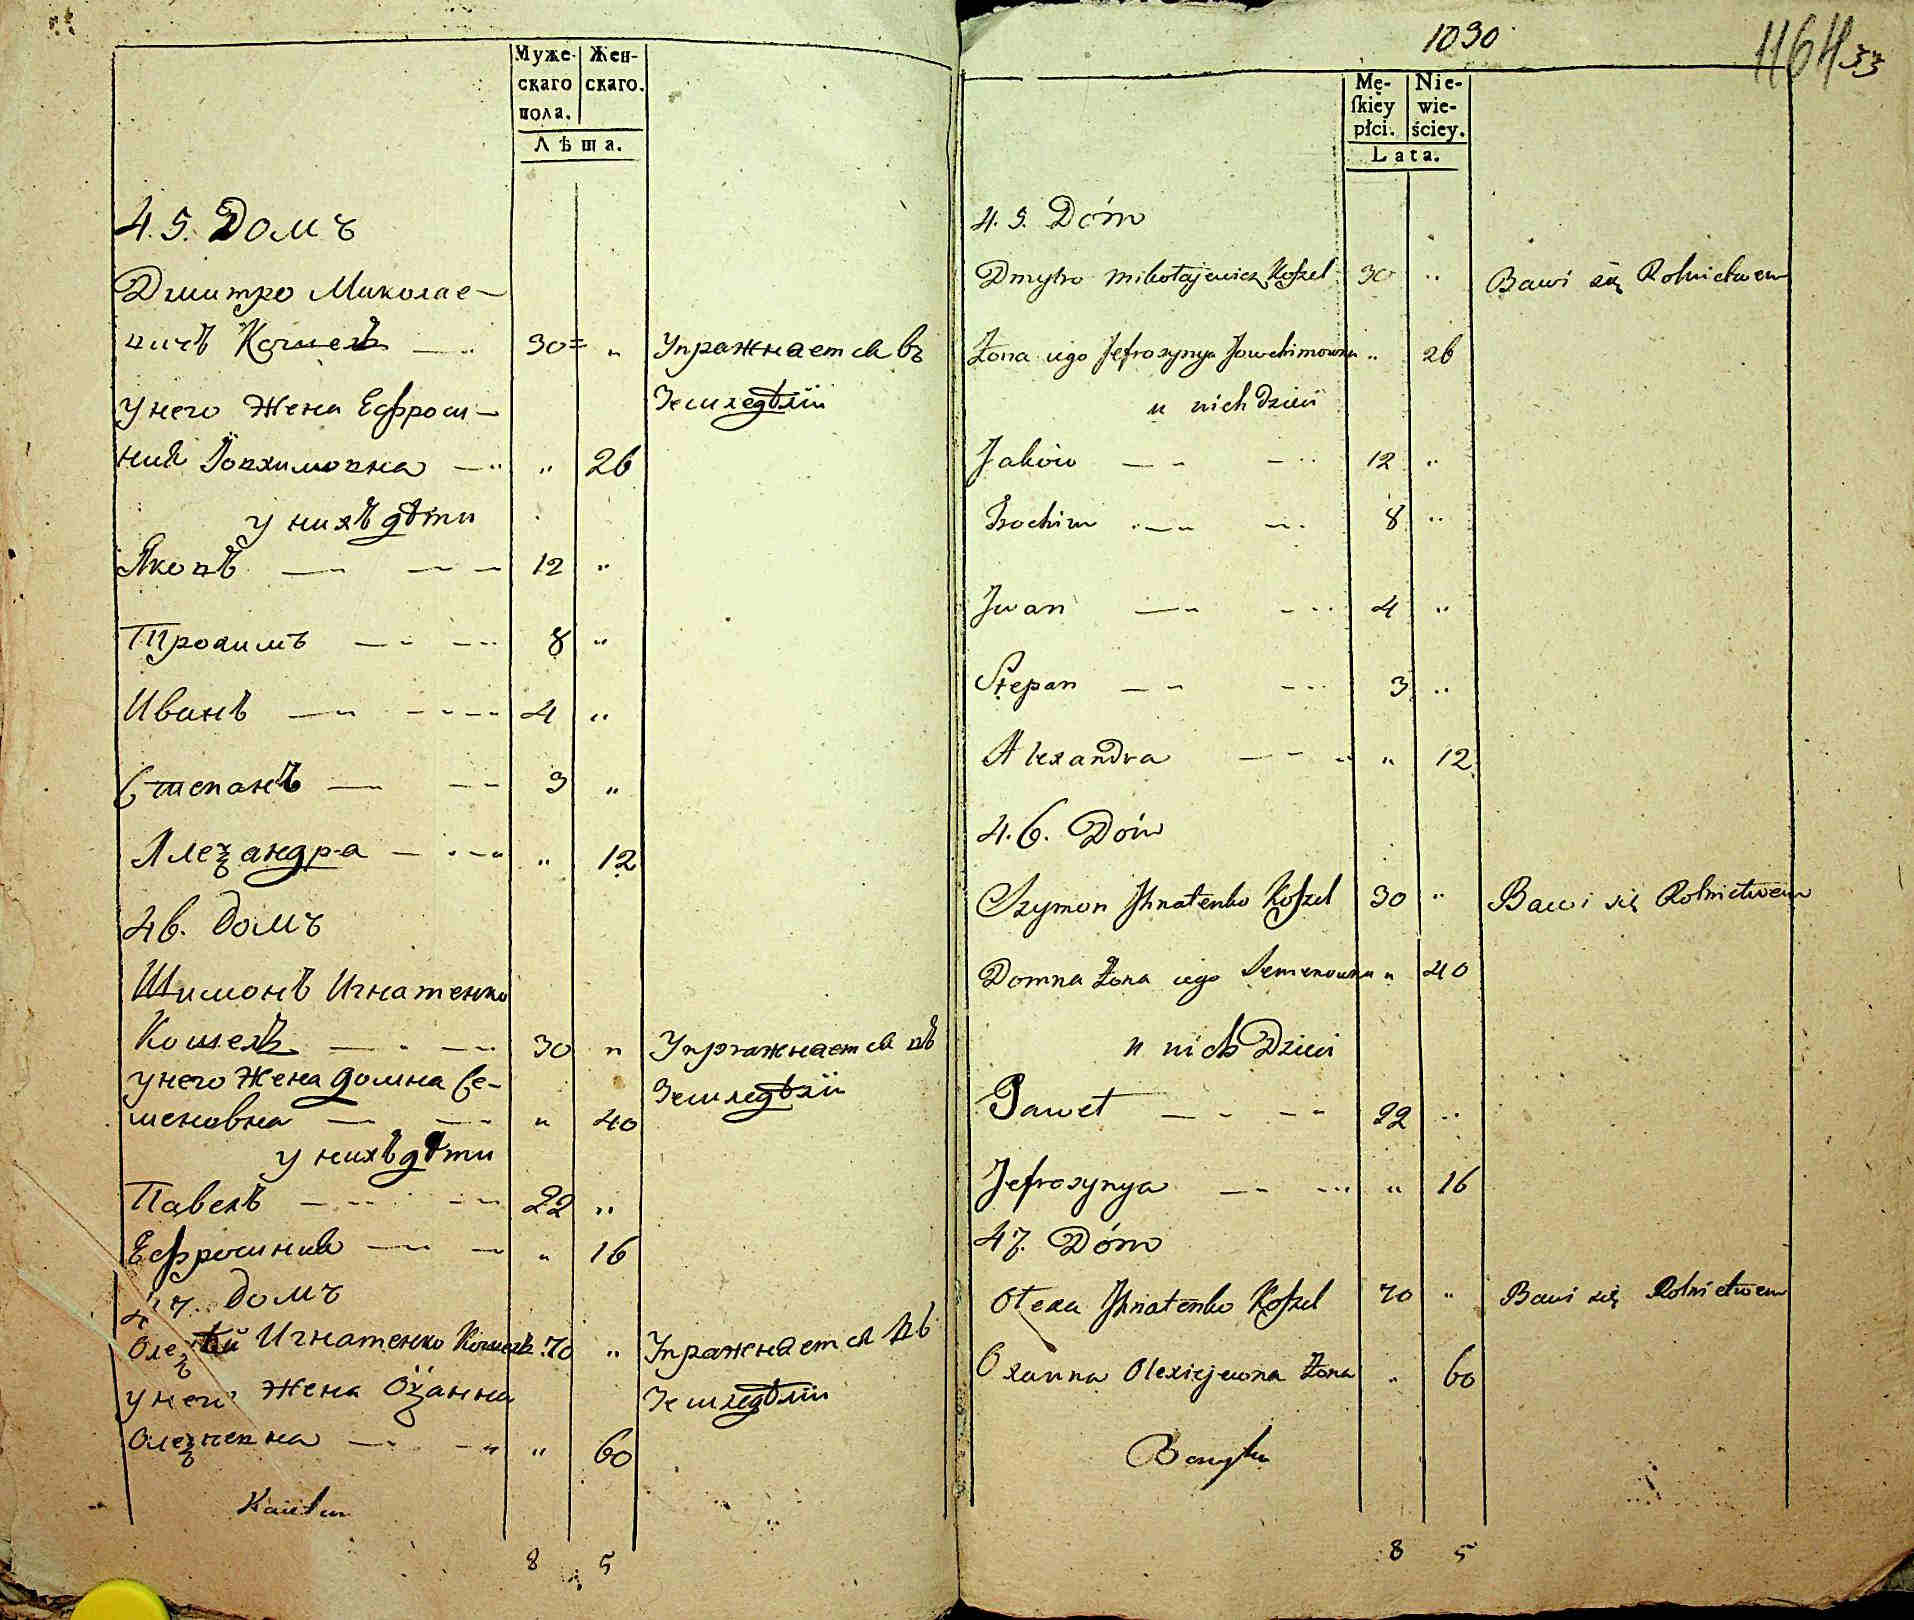 Муже-
скаго
пола.
Жен-
скаго.
Лѣта.
4.5. Домъ
Дмитро Миколае-
вичъ Кошель — 30 "
Упражнается въ
Земледѣліи
у него Жена Ефроси-
нія Іовхимовна — " 26
у нихъ дѣти
Яковъ — 12 "
Трохимъ — 8 "
Иванъ — 4 "
Степанъ — 3 "
Алеѯандра — " 12
46. Домъ
Шимонъ Игнатенко
Кошель — 30 "
Упражнается въ
Земледѣліи
у него Жена Домна Се-
меновна — " 40
у нихъ дѣти
Павелъ — 22 "
Ефросинія — " 16
47. Домъ
Олеѯѣй Игнатенко Кошель 70 "
Упражнается въ
Земледѣліи
у него Жена Оѯанна
Олеѯѣевна — " 60
8 5
1030
1164 33
Mę-
ſkiey
płci.
Nie-
wie-
ściey.
Lata.
4.5. Dóm
Dmytro Mikołajewicz Koſzel 30 " Bawi się Rolnictwem
Żona iego Jefrosynya Jowchimowna " 26
u nich dzieci
Jaków — 12 "
Trochim — 8 "
Jwan — 4 "
Stepan — 3 "
Alexandra — " 12
4.6. Dóm
Szymon Jhnatenko Koſzel 30 " Bawi się Rolnictwem
Domna Żona iego Semenowna " 40
u nich Dzieci
Paweł — 22 "
Jefrosynya — " 16
47. Dóm
Ołexa Jhnatenko Koſzel 70 " Bawi się Rolnictwem
Oxanna Olexiejewna Żona " 60
8 5